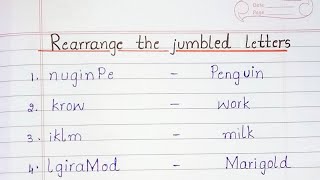 Date
Page
Rearrange the jumbled letters
1. nuginPe – Penguin
2. krow – work
3. iklm – milk
4. lgiraMod – Marigold